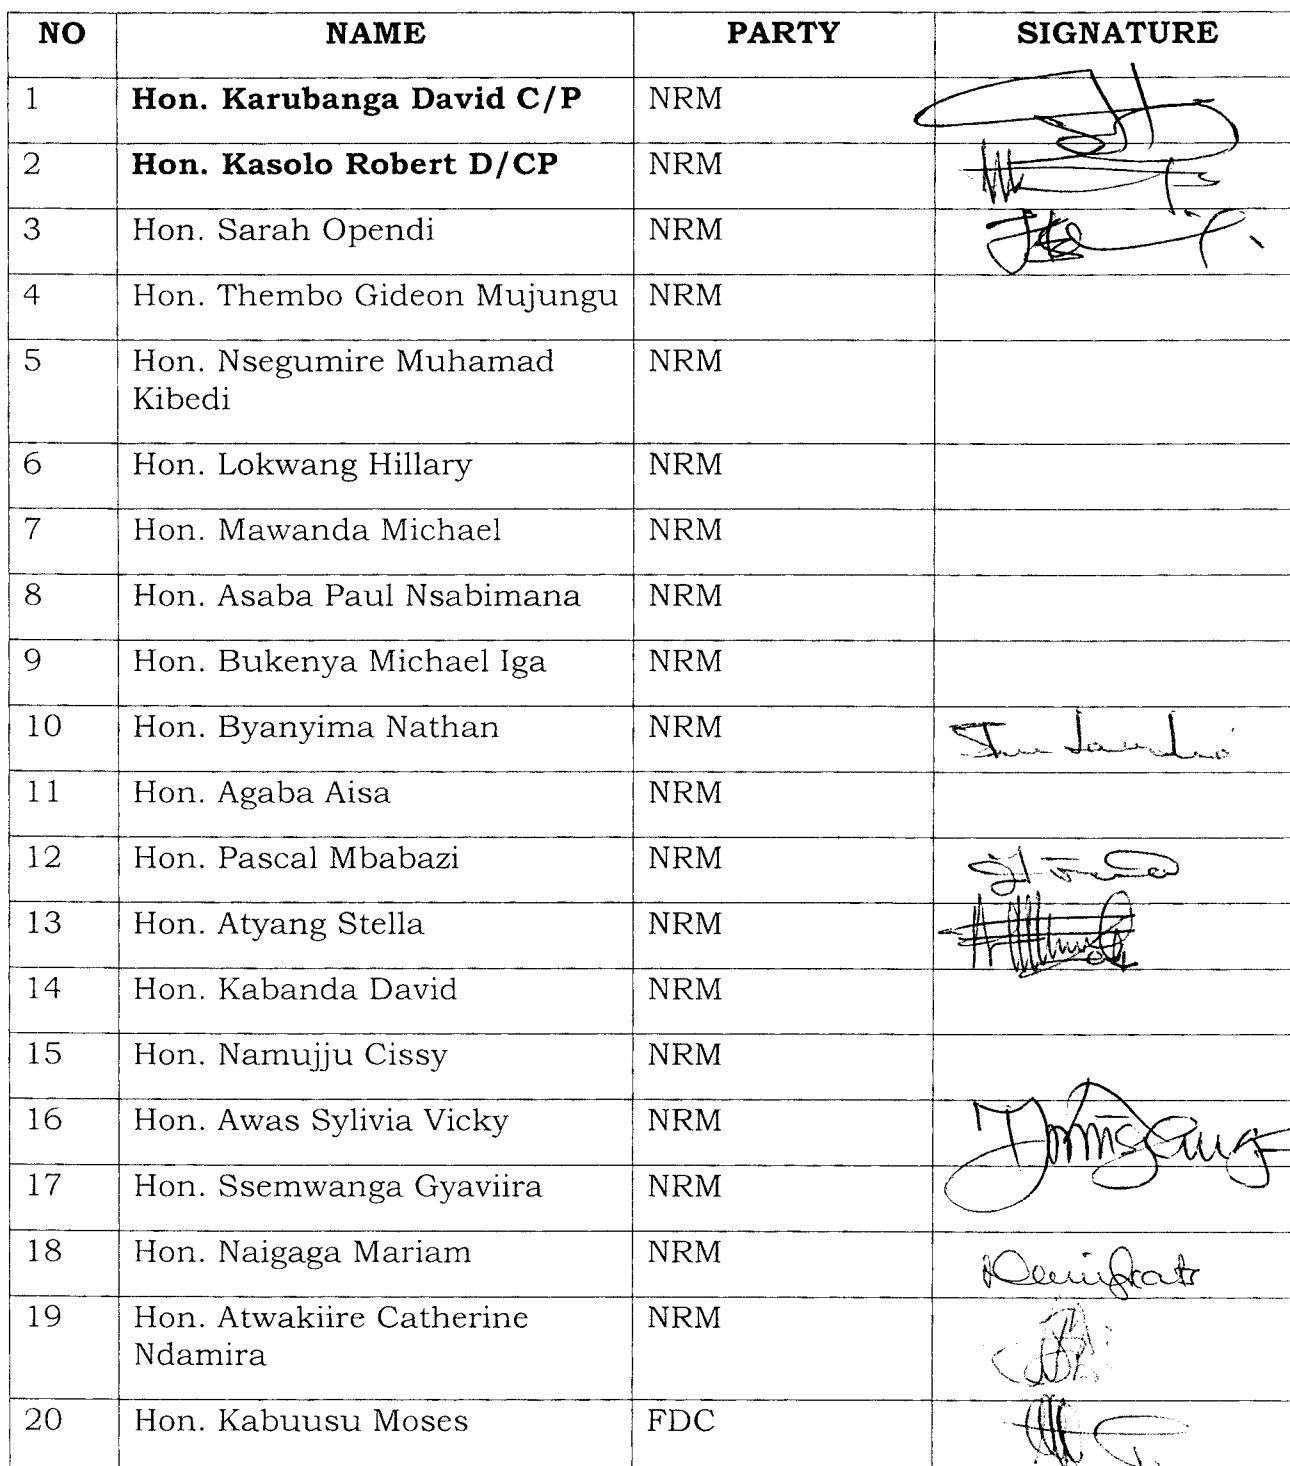 NO NAME PARTY SIGNATURE
1 Hon. Karubanga David C/P NRM
2 Hon. Kasolo Robert D/CP NRM
3 Hon. Sarah Opendi NRM
4 Hon. Thembo Gideon Mujungu NRM
5 Hon. Nsegumire Muhamad NRM
Kibedi
6 Hon. Lokwang Hillary NRM
7 Hon. Mawanda Michael NRM
8 Hon. Asaba Paul Nsabimana NRM
9 Hon. Bukenya Michael Iga NRM
10 Hon. Byanyima Nathan NRM
11 Hon. Agaba Aisa NRM
12 Hon. Pascal Mbabazi NRM
13 Hon. Atyang Stella NRM
14 Hon. Kabanda David NRM
15 Hon. Namujju Cissy NRM
16 Hon. Awas Sylivia Vicky NRM
17 Hon. Ssemwanga Gyaviira NRM
18 Hon. Naigaga Mariam NRM
19 Hon. Atwakiire Catherine NRM
Ndamira
20 Hon. Kabuusu Moses FDC